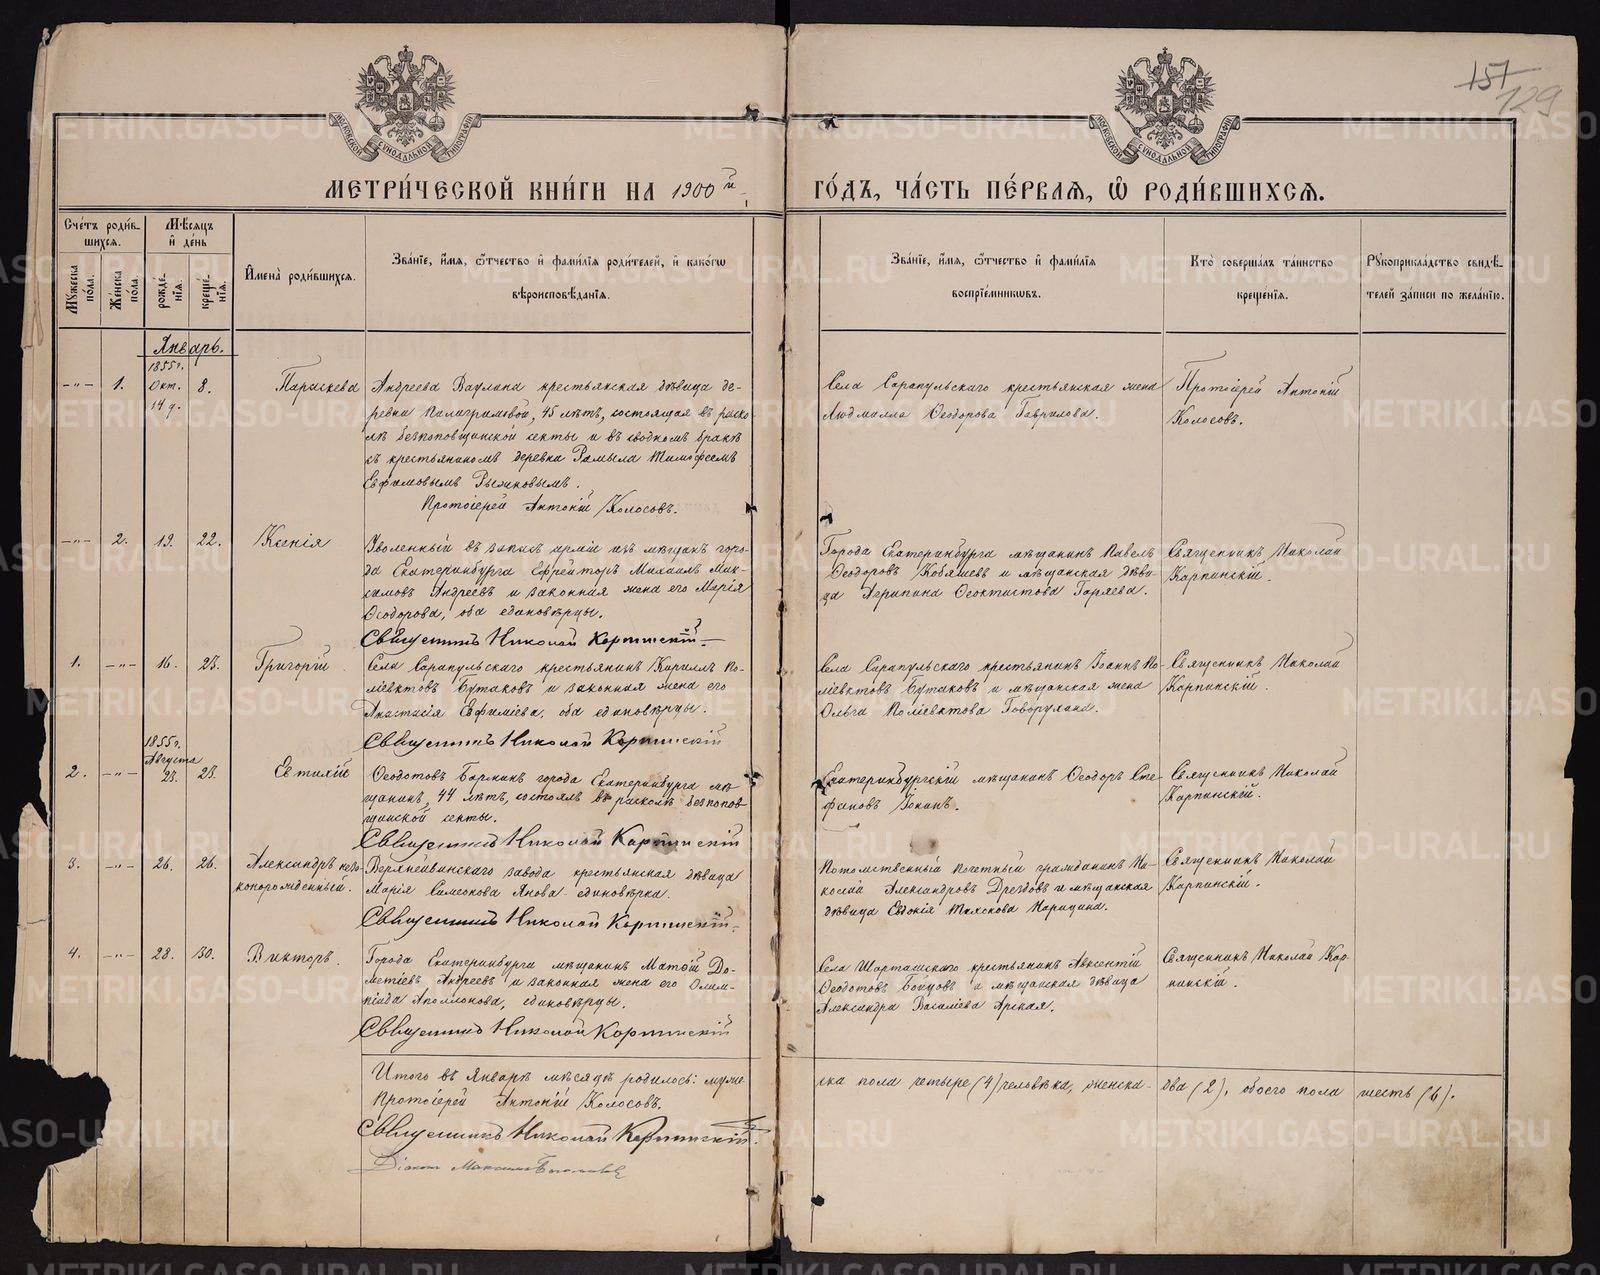 157
129
МОСКОВСКОЙ СѴНОДАЛЬНОЙ ТИПОГРАФІИ
МОСКОВСКОЙ СѴНОДАЛЬНОЙ ТИПОГРАФІИ
МЕТРИ́ЧЕСКОЙ КНИ́ГИ НА 1900й
ГО́ДЪ, ЧА́СТЬ ПЕ́РВАЯ, Ѿ РОДИ́ВШИХСЯ.
Сче́тъ роди́в-
шихся.
Мѣ́сяцъ
и̂ де́нь
Мꙋ́жеска по́ла.
Же́нска по́ла.
рожде́-нія.
креще́-нія.
И̂мена̀ роди́вшихся.
Зва́ніе, и̂́мя, ѻ̂́тчество и̂ фами́лія роди́телей, и̂ како́гѡ
вѣроисповѣ́данія.
Зва́ніе, и̂́мя, ѻ̂́тчество и̂ фами́лія
воспріе́мникѡвъ.
Кто̀ соверша́лъ та́инство
креще́нія.
Рꙋкоприкла́дство свидѣ́-
телей за́писи по жела́нію.
Январь.
1855 г.
—„— 1. Окт. 8. Параскева
14 д.
Андреева Ваулина крестьянская дѣвица де-
ревни Пилигримовой, 45 лѣтъ, состоящая въ раско-
лѣ безпоповщинской секты и въ сводномъ бракѣ
съ крестьяниномъ деревни Рамыла Тимофеемъ
Ефимовымъ
Протоіерей Антоній Колосовъ.
Села Сарапульскаго крестьянская жена
Людмилла Ѳеодорова Гаврилова.
Протоіерей Антоній
Колосовъ.
—„— 2. 19. 22. Ксенія
Уволенный въ запасъ арміи изъ мѣщанъ горо-
да Екатеринбурга Ефрейторъ Михаилъ Мак-
симовъ Андреевъ и законная жена его Марія
Ѳеодорова, оба единовѣрцы.
Священникъ Николай Карпинскій
Города Екатеринбурга мѣщанинъ Павелъ
Ѳеодоровъ Кобяшевъ и мѣщанская дѣви-
ца Агрипина Ѳеоктистова Горяева.
Священникъ Николай
Карпинскій.
1. —„— 16. 25. Григорій
Села Сарапульскаго крестьянинъ Кириллъ По-
ліевктовъ Бутаковъ и законная жена его
Анастасія Евфиміева, оба единовѣрцы.
Священникъ Николай Карпинскій
Села Сарапульскаго крестьянинъ Іоаннъ По-
ліевктовъ Бутаковъ и мѣщанская жена
Ольга Поліевктова Говорухина.
Священникъ Николай
Карпинскій.
1855 г.
Августа
2. —„— 28. 28. Евтихій
Ѳеодотовъ города Екатеринбурга мѣ-
щанинъ, 44 лѣтъ, состоялъ въ расколѣ безпопов-
щинской секты.
Священникъ Николай Карпинскій
Екатеринбургскій мѣщанинъ Ѳеодоръ Сте-
фановъ
Священникъ Николай
Карпинскій.
3. —„— 26. 26. Александръ неза-
коннорожденный.
Верхнейвинскаго завода крестьянская дѣвица
Марія Симеонова Янова единовѣрка.
Священникъ Николай Карпинскій
Потомственный почетный гражданинъ Ни-
колай Александровъ Дрездовъ и мѣщанская
дѣвица Евдокія Нарицина.
Священникъ Николай
Карпинскій.
4. —„— 28. 30. Викторъ.
Города Екатеринбурга мѣщанинъ Матѳій До-
метіевъ Андреевъ и законная жена его Олим-
піада Аполлонова, единовѣрцы.
Священникъ Николай Карпинскій
Села Шарташскаго крестьянинъ Авксентій
Ѳеодотовъ Бойцовъ и мѣщанская дѣвица
Александра Василіева Арская.
Священникъ Николай Кар-
пинскій.
Итого въ Январѣ мѣсяцѣ родилось: муже-
ска пола четыре (4) человѣка, женска- два (2), обоего пола шесть (6).
Протоіерей Антоній Колосовъ.
Священникъ Николай Карпинскій.
Діаконъ
METRIKI.GASO-URAL.RU